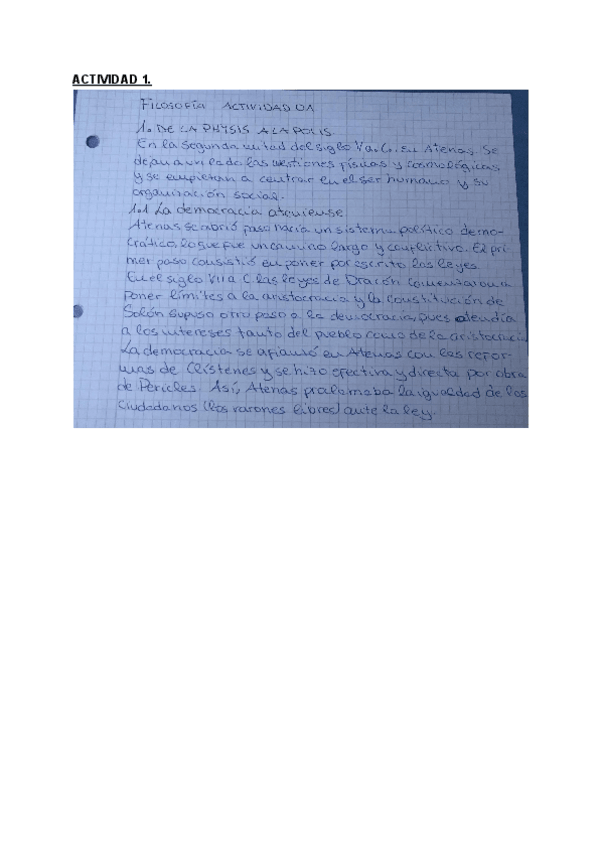 ACTIVIDAD 1.
FILOSOFÍA ACTIVIDAD 01
1. DE LA PHYSIS A LA POLIS
En la segunda mitad del siglo V a.C. en Atenas. Se
dejan a un lado las cuestiones físicas y cosmológicas
y se empiezan a centrar en el ser humano y su
organización social.
1.1 La democracia ateniense
Atenas se abrió paso hacia un sistema político demo-
crático, lo que fue un camino largo y conflictivo. El pri-
mer paso consistió en poner por escrito las leyes.
En el siglo VII a C las leyes de Dracón comenzaron a
poner límites a la aristocracia y la constitución de
Solón supuso otro paso a la democracia, pues atendía
a los intereses tanto del pueblo como de la aristocracia
La democracia se afianzó en Atenas con las refor-
mas de Clístenes y se hizo efectiva y directa por obra
de Pericles. Así, Atenas proclamaba la igualdad de los
ciudadanos (los varones libres) ante la ley.